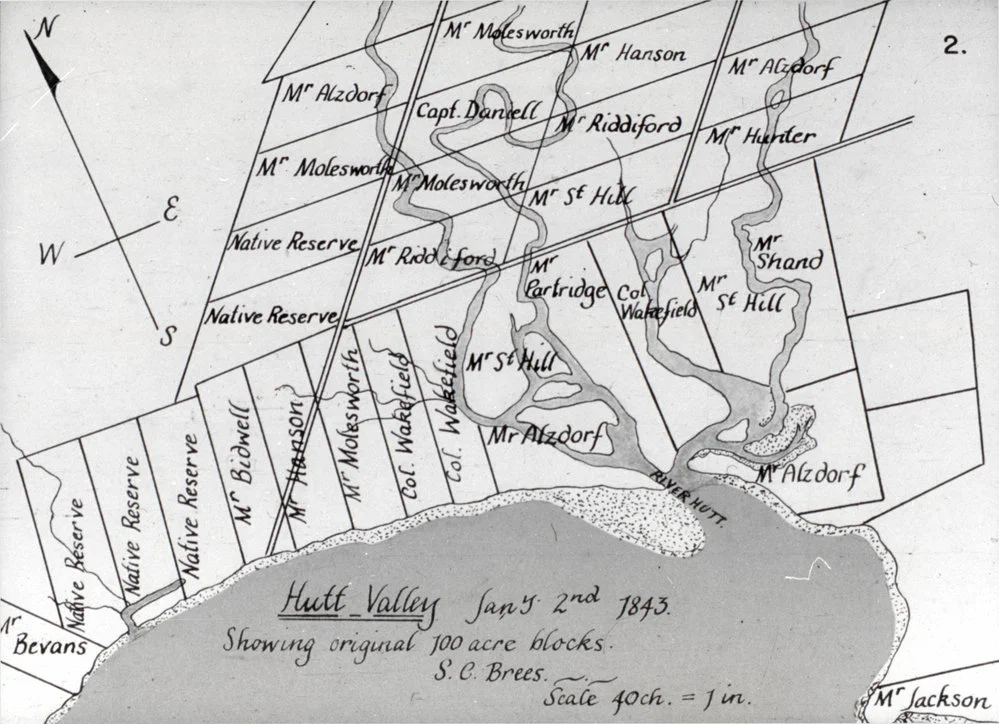 N
2.
Mr Molesworth
Mr Hanson
Mr Alzdorf
Mr Alzdorf
Capt. Daniell
Mr Riddiford
Mr Hunter
Mr Molesworth
Mr Molesworth
Mr St Hill
E
W
Native Reserve
Mr Riddiford
Mr
Shand
Mr
Partridge
Col.
Wakefield
Mr
St Hill
Native Reserve
S
Mr St Hill
Mr Alzdorf
Mr Alzdorf
Native Reserve
Native Reserve
Native Reserve
Mr Bidwell
Mr Hanson
Mr Molesworth
Col. Wakefield
Col. Wakefield
RIVER HUTT.
Mr
Bevans
Hutt Valley Jany. 2nd 1843.
Showing original 100 acre blocks.
S. C. Brees.
Scale 40ch. = 1 in.
Mr Jackson